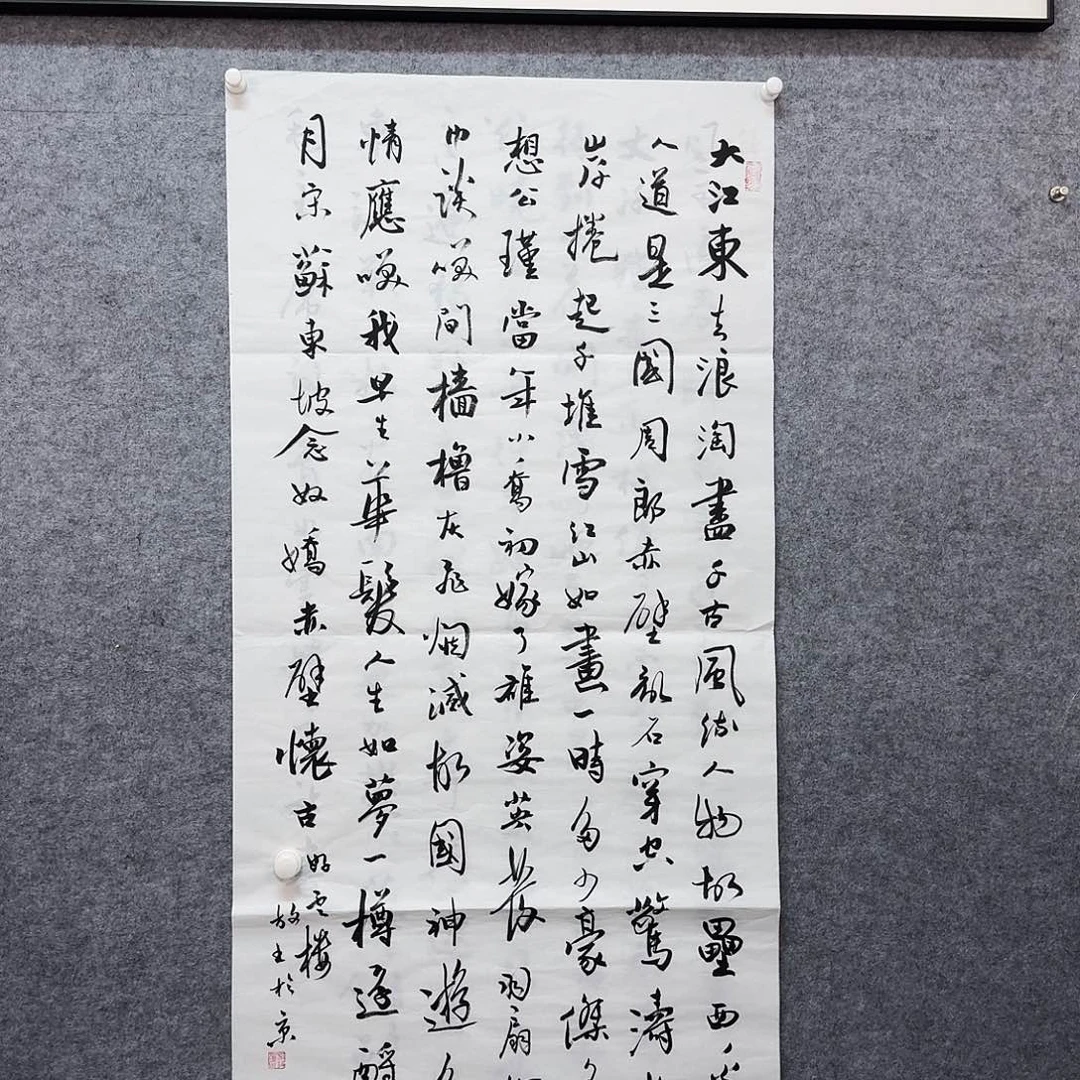 大江東去浪淘盡千古風流人物故壘西
人道是三國周郎赤壁亂石穿空驚濤
岸捲起千堆雪江山如畫一時多少豪傑
想公瑾當年小喬初嫁了雄姿英發羽扇
巾談笑間檣櫓灰飛煙滅故國神遊
情應笑我早生華髮人生如夢一樽還酹
月宋蘇東坡念奴嬌赤壁懷古
樓
於京